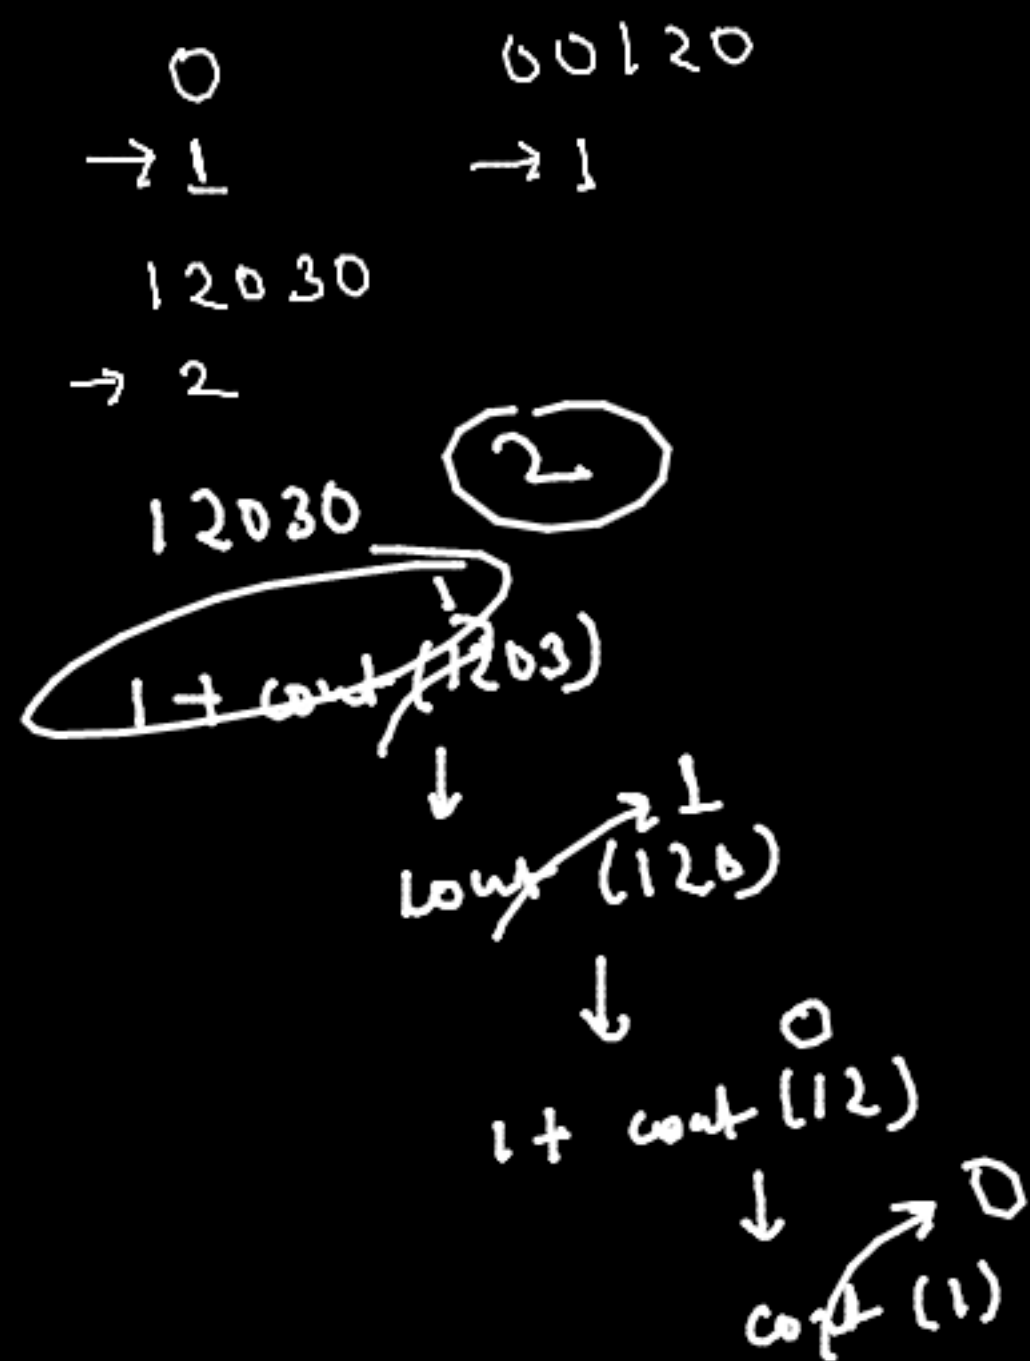 0 00120
→ 1 → 1
12030
→ 2
2
12030
1
1 + cout (1203)
↓
1
cout (120)
↓
0
1+ cout (12)
↓
0
cout (1)